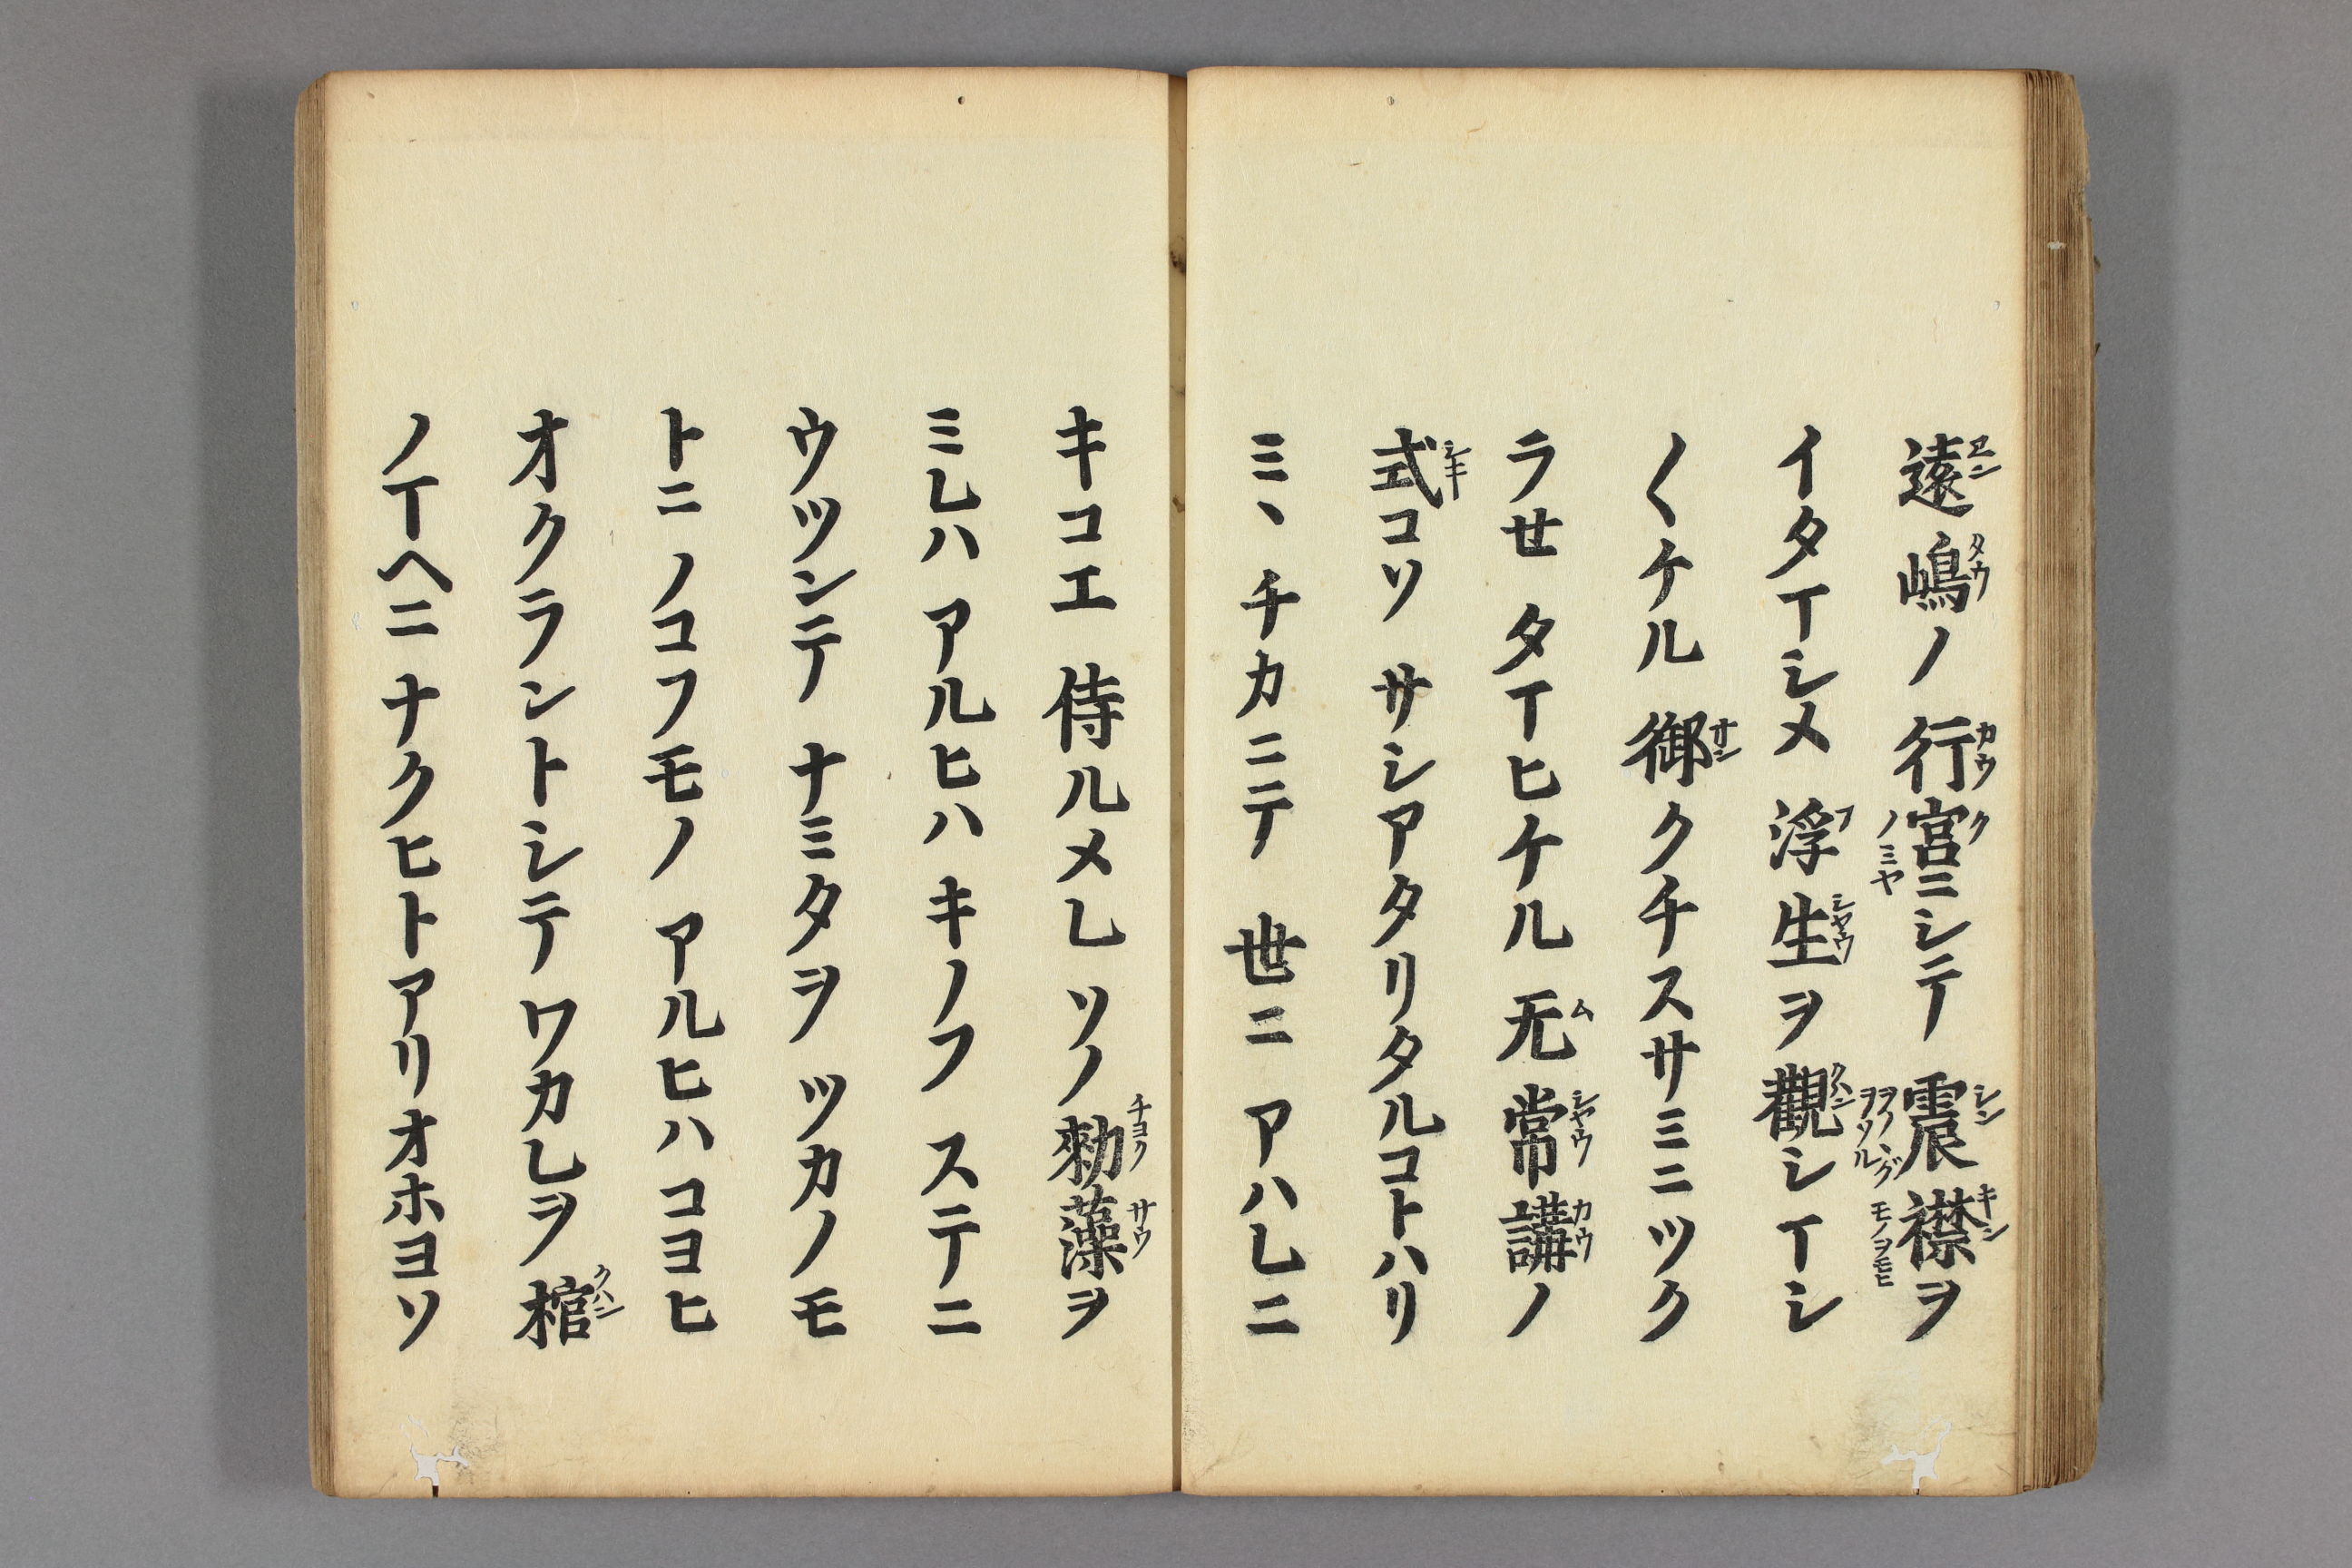 遠嶋ノ行宮ニシテ震襟ヲ
イタマシメ浮生ヲ觀シマシ
〱ケル御クチスサミニツク
ラせタマヒケル无常講ノ
式コソサシアタリタルコトハリ
ミヽチカニテ世ニアハレニ
キコエ侍ルメレソノ勅藻ヲ
ミレハアルヒハキノフステニ
ウツンテナミタヲツカノモ
トニノコフモノアルヒハコヨヒ
オクラントシテワカレヲ棺
ノマヘニナクヒトアリオホヨソ